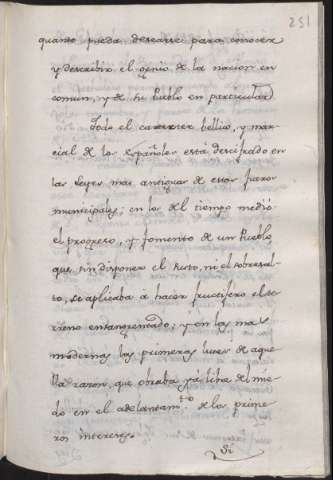 251
quanto pueda desearse para conocer
y describir el genio de la nacion en
comun, y de su Pueblo en particular.
Todo el caracter bellico, y mar-
cial de los Españoles está descifrado en
las Leyes mas antiguas de estos fueros
municipales; en los del tiempo medio
el progreso, y fomento de un Pueblo
que, sin disponer el susto, ni el sobresal-
to, se aplicaba á hacer fructifero el te-
rreno ensangrentado; y en las mas
modernas las primeras luces de aque-
lla razon, que obraba yá libre del mie-
do en el adelantam.to de los prime-
ros intereses.
Si